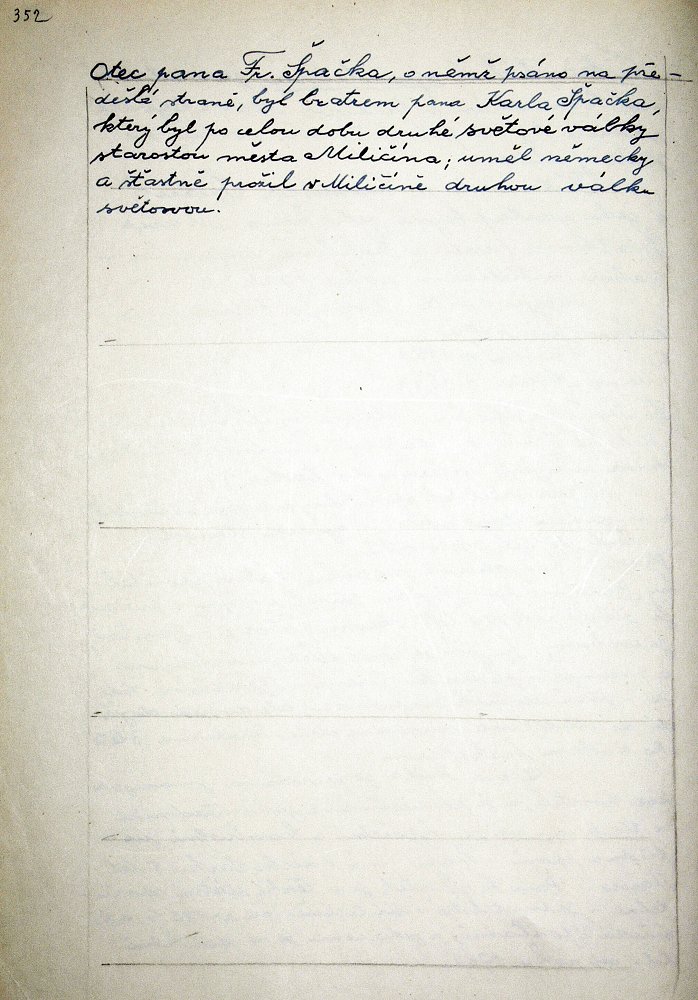 352
Otec pana Fr. Špačka, o němž psáno na pře-
dešlé straně, byl bratrem pana Karla Špačka,
který byl po celou dobu druhé světové války
starostou města Miličína; uměl německy
a šťastně prožil v Miličíně druhou válku
světovou.